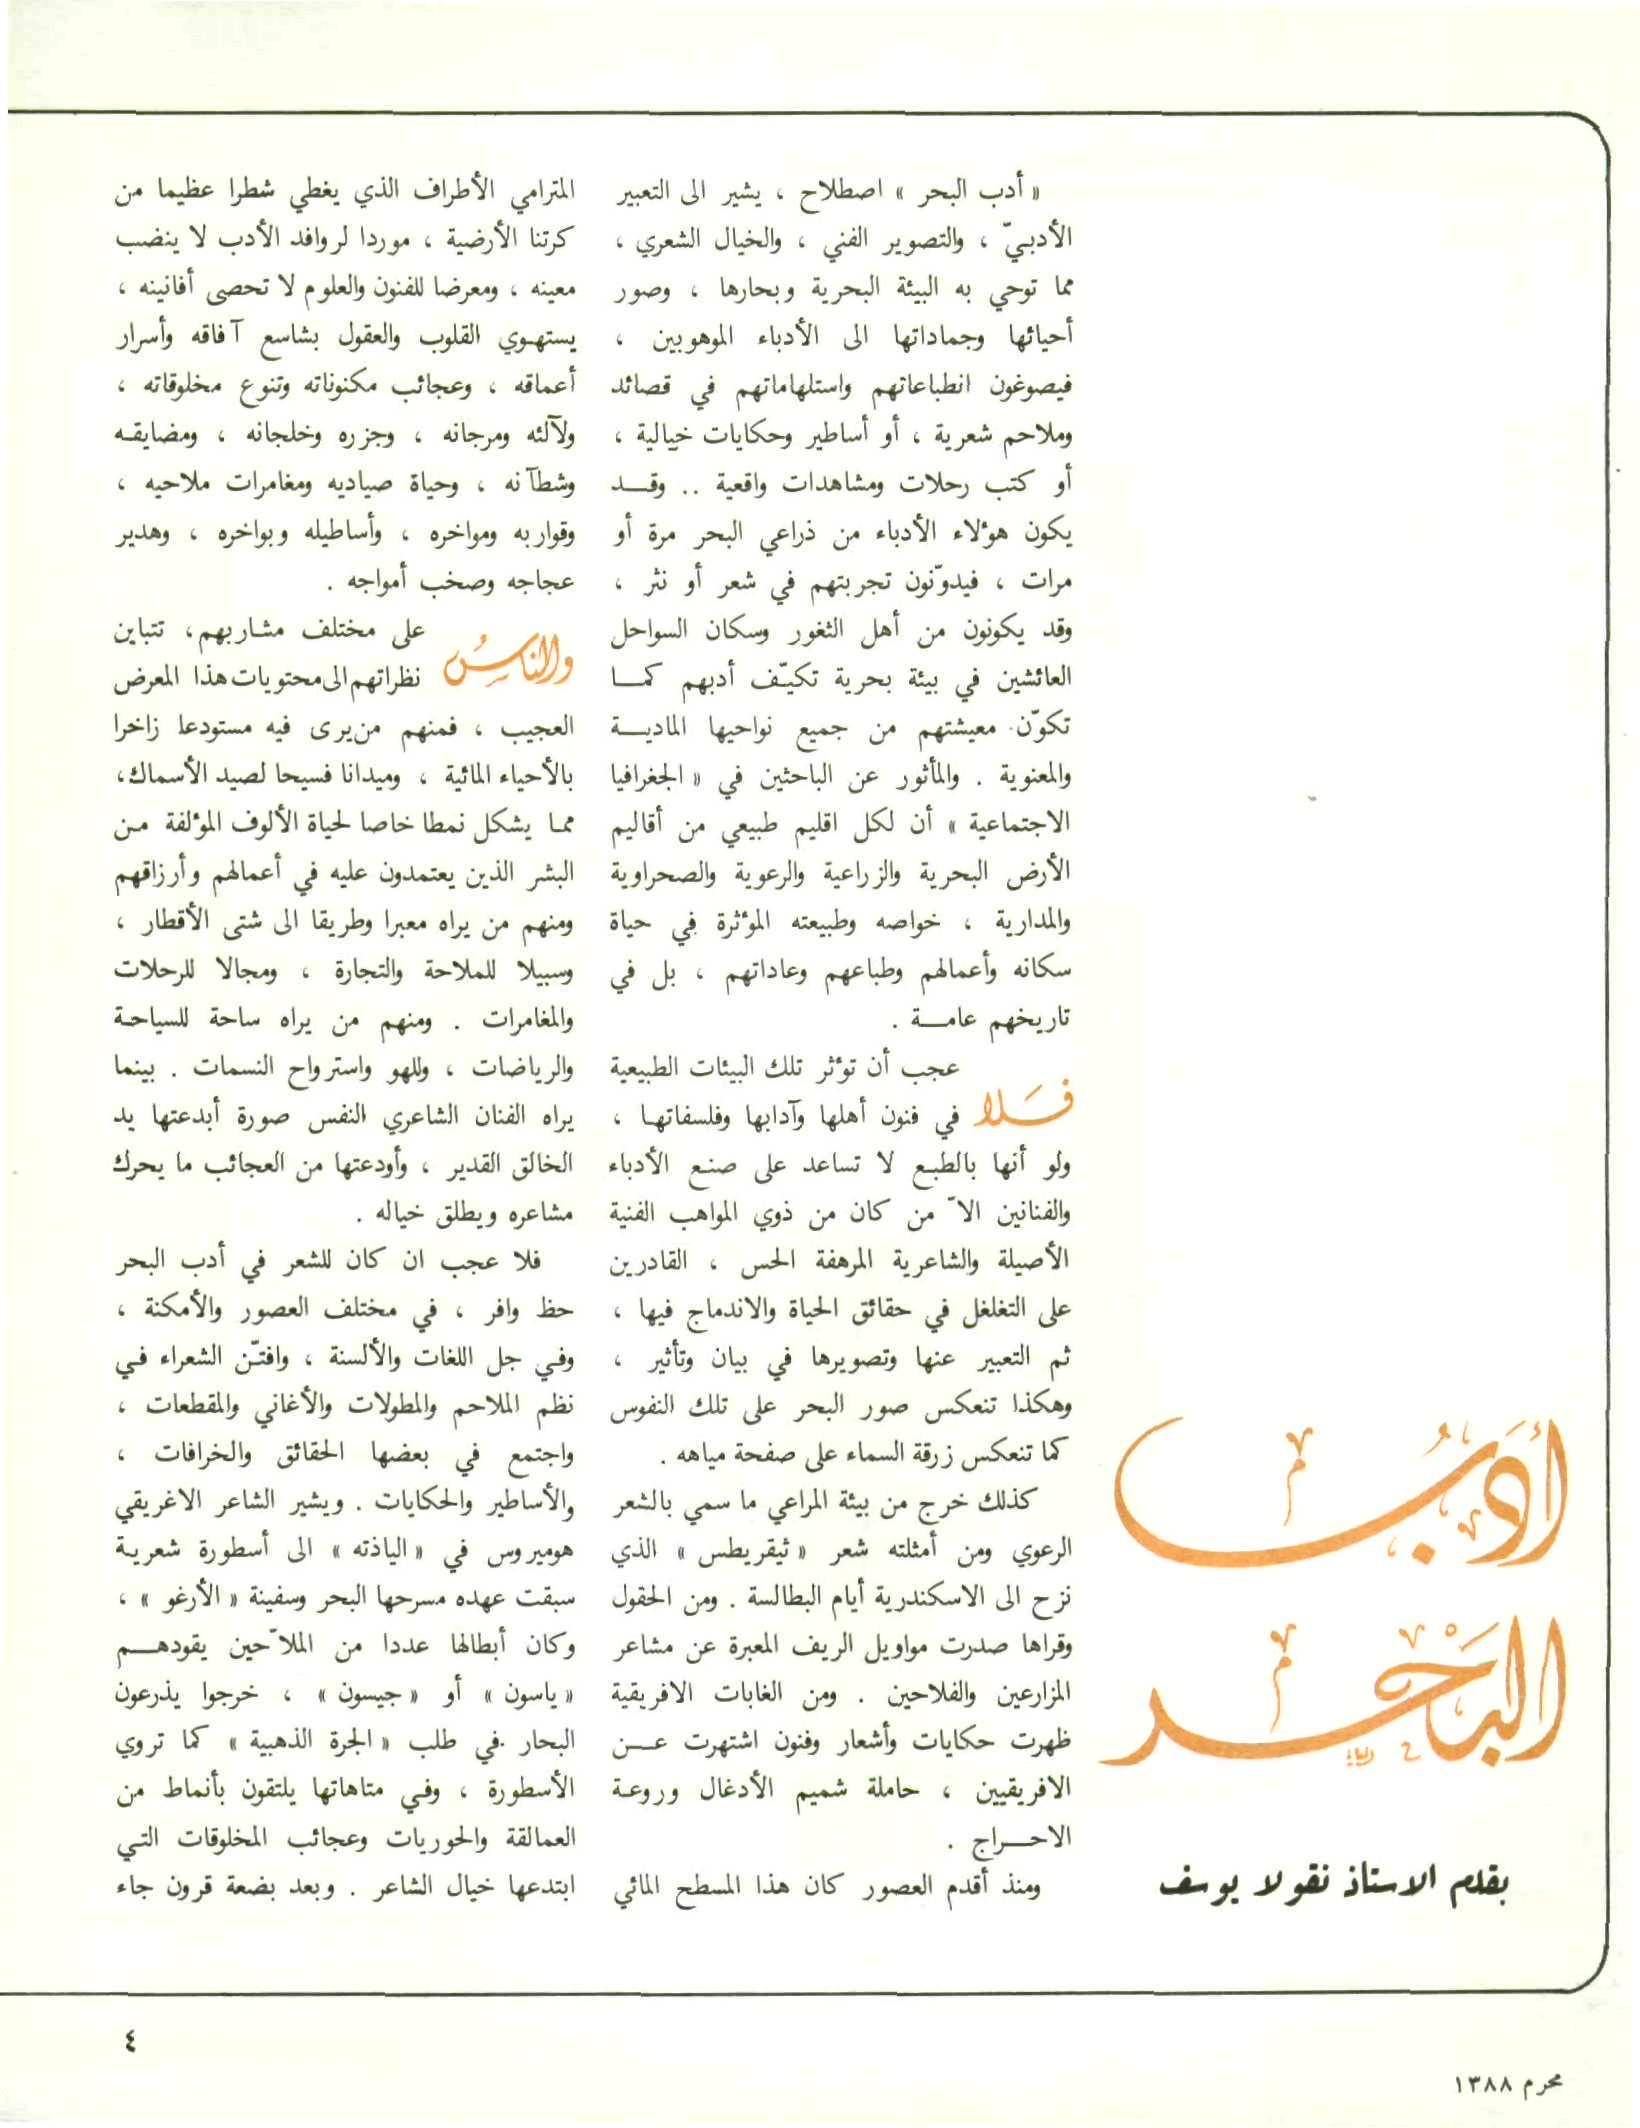 أدب
البحر
بقلم الاستاذ نقولا يوسف
« أدب البحر » اصطلاح ، يشير الى التعبير
الأدبيّ ، والتصوير الفني ، والخيال الشعري ،
مما توحي به البيئة البحرية وبحارها ، وصور
أحيائها وجماداتها الى الأدباء الموهوبين ،
فيصوغون انطباعاتهم واستلهاماتهم في قصائد
وملاحم شعرية ، أو أساطير وحكايات خيالية ،
أو كتب رحلات ومشاهدات واقعية .. وقد
يكون هؤلاء الأدباء من ذراعي البحر مرة أو
مرات ، فيدوّنون تجربتهم في شعر أو نثر ،
وقد يكونون من أهل الثغور وسكان السواحل
العائشين في بيئة بحرية تكيّف أدبهم كما
تكوّن معيشتهم من جميع نواحيها المادية
والمعنوية . والمأثور عن الباحثين في « الجغرافيا
الاجتماعية » أن لكل اقليم طبيعي من أقاليم
الأرض البحرية والزراعية والرعوية والصحراوية
والمدارية ، خواصه وطبيعته المؤثرة في حياة
سكانه وأعمالهم وطباعهم وعاداتهم ، بل في
تاريخهم عامة .
فلا عجب أن تؤثر تلك البيئات الطبيعية
في فنون أهلها وآدابها وفلسفاتها ،
ولو أنها بالطبع لا تساعد على صنع الأدباء
والفنانين الاّ من كان من ذوي المواهب الفنية
الأصيلة والشاعرية المرهفة الحس ، القادرين
على التغلغل في حقائق الحياة والاندماج فيها ،
ثم التعبير عنها وتصويرها في بيان وتأثير ،
وهكذا تنعكس صور البحر على تلك النفوس
كما تنعكس زرقة السماء على صفحة مياهه .
كذلك خرج من بيئة المراعي ما سمي بالشعر
الرعوي ومن أمثلته شعر « ثيقريطس » الذي
نزح الى الاسكندرية أيام البطالسة . ومن الحقول
وقراها صدرت مواويل الريف المعبرة عن مشاعر
المزارعين والفلاحين . ومن الغابات الافريقية
ظهرت حكايات وأشعار وفنون اشتهرت عن
الافريقيين ، حاملة شميم الأدغال وروعة
الاحراج .
ومنذ أقدم العصور كان هذا المسطح المائي
المترامي الأطراف الذي يغطي شطرا عظيما من
كرتنا الأرضية ، موردا لروافد الأدب لا ينضب
معينه ، ومعرضا للفنون والعلوم لا تحصى أفانينه ،
يستهوي القلوب والعقول بشاسع آفاقه وأسرار
أعماقه ، وعجائب مكنوناته وتنوع مخلوقاته ،
ولآلئه ومرجانه ، وجزره وخلجانه ، ومضايقه
وشطآنه ، وحياة صياديه ومغامرات ملاحيه ،
وقواربه ومواخره ، وأساطيله وبواخره ، وهدير
عجاجه وصخب أمواجه .
والناس على مختلف مشاربهم، تتباين
نظراتهم الى محتويات هذا المعرض
العجيب ، فمنهم من يرى فيه مستودعا زاخرا
بالأحياء المائية ، وميدانا فسيحا لصيد الأسماك،
مما يشكل نمطا خاصا لحياة الألوف المؤلفة من
البشر الذين يعتمدون عليه في أعمالهم وأرزاقهم
ومنهم من يراه معبرا وطريقا الى شتى الأقطار ،
وسبيلا للملاحة والتجارة ، ومجالا للرحلات
والمغامرات . ومنهم من يراه ساحة للسياحة
والرياضات ، وللهو واسترواح النسمات . بينما
يراه الفنان الشاعري النفس صورة أبدعتها يد
الخالق القدير ، وأودعتها من العجائب ما يحرك
مشاعره ويطلق خياله .
فلا عجب ان كان للشعر في أدب البحر
حظ وافر ، في مختلف العصور والأمكنة ،
وفي جل اللغات والألسنة ، وافتنّ الشعراء في
نظم الملاحم والمطولات والأغاني والمقطعات ،
واجتمع في بعضها الحقائق والخرافات ،
والأساطير والحكايات . ويشير الشاعر الاغريقي
هوميروس في « الياذته » الى أسطورة شعرية
سبقت عهده مسرحها البحر وسفينة « الأرغو » ،
وكان أبطالها عددا من الملاّحين يقودهم
« ياسون » أو « جيسون » ، خرجوا يذرعون
البحار في طلب « الجرة الذهبية » كما تروي
الأسطورة ، وفي متاهاتها يلتقون بأنماط من
العمالقة والحوريات وعجائب المخلوقات التي
ابتدعها خيال الشاعر . وبعد بضعة قرون جاء
٤
محرم ١٣٨٨